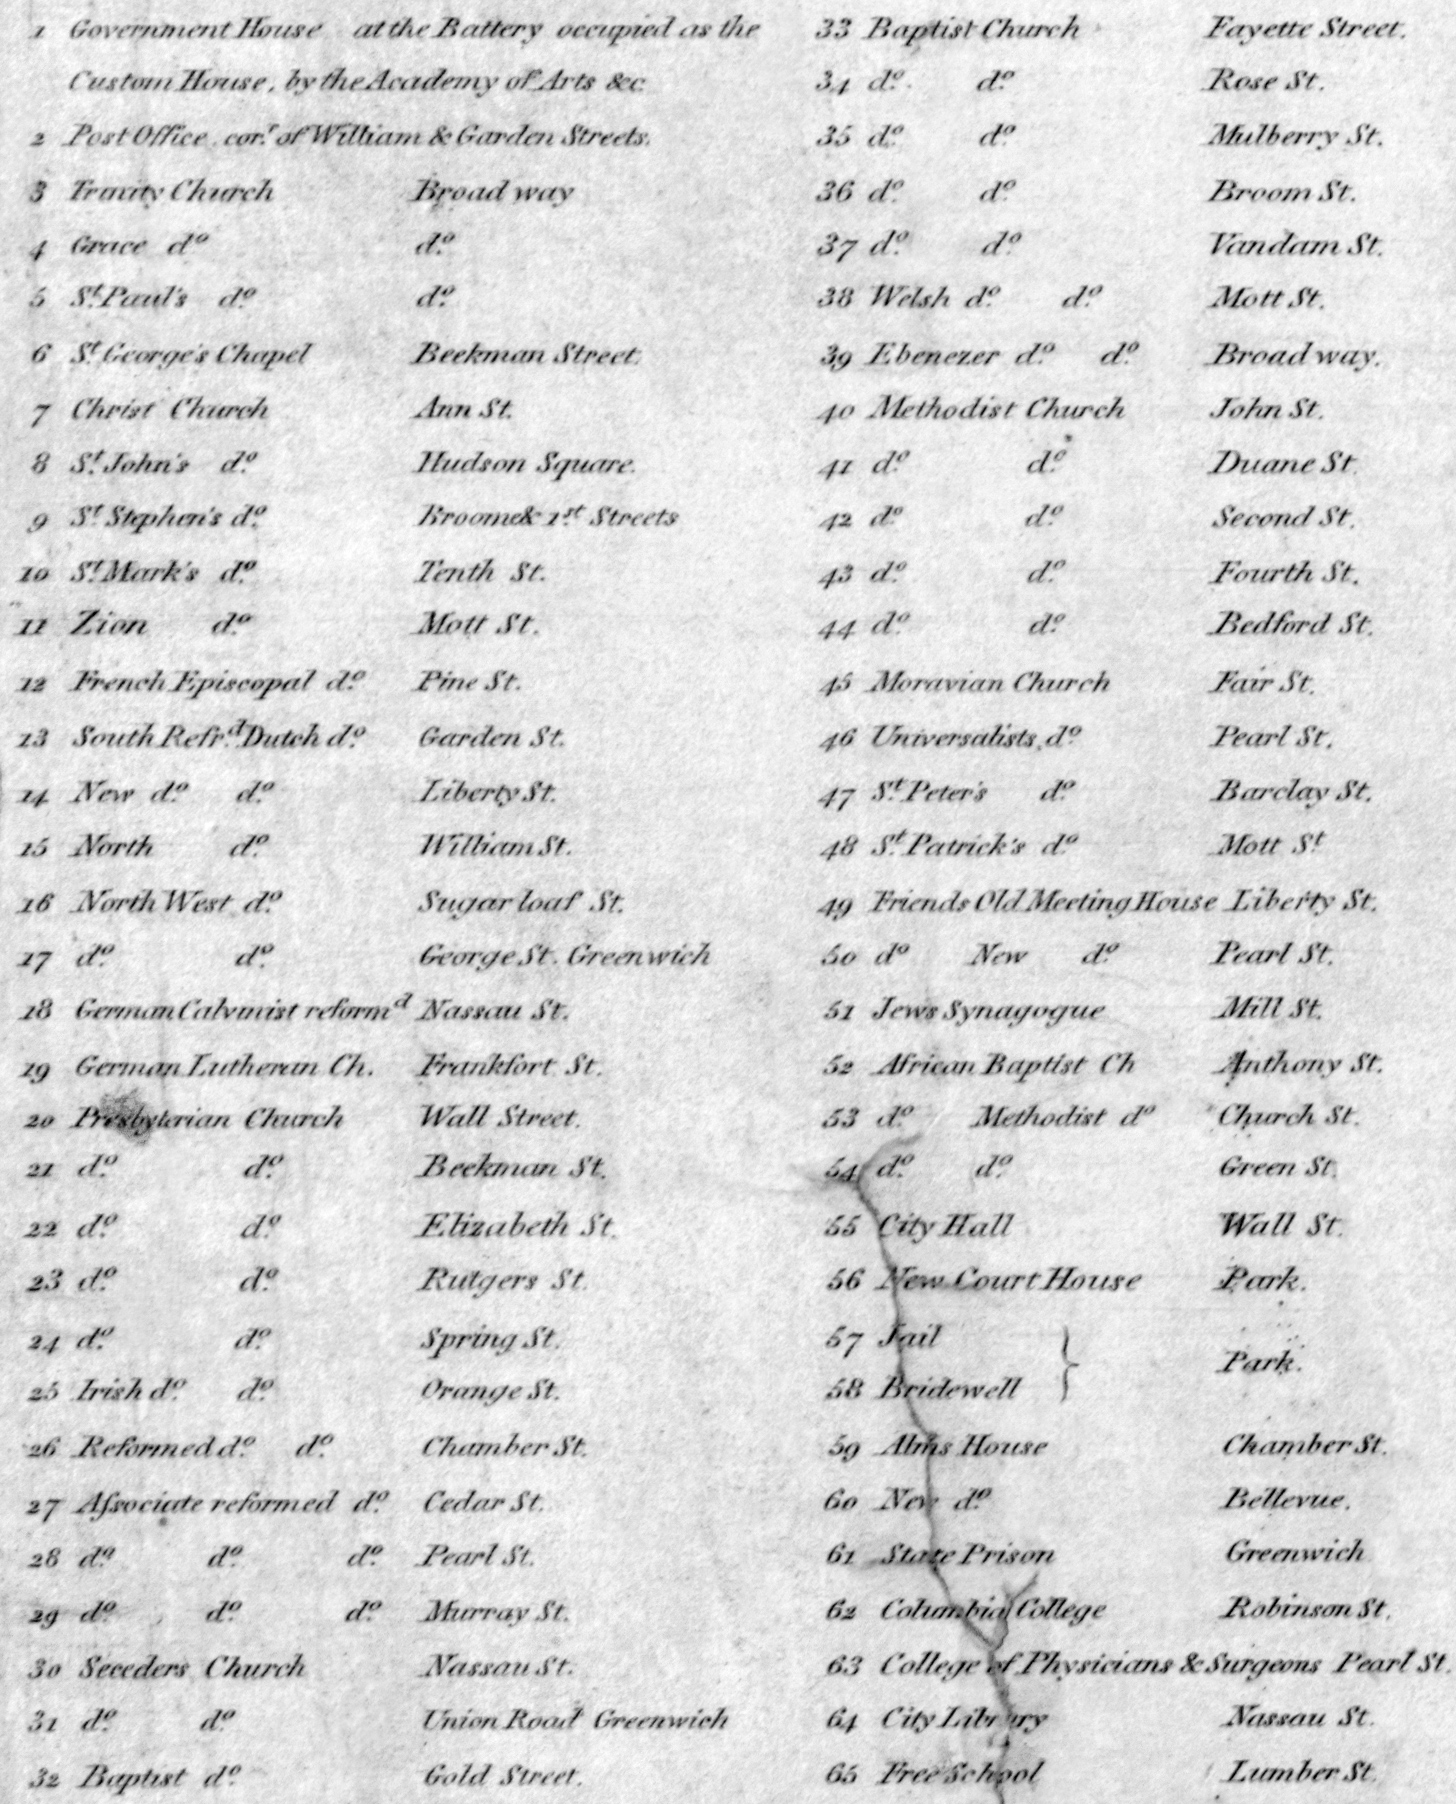 1 Government House at the Battery occupied as the
Custom House, by the Academy of Arts &c
2 Post Office, cor.r of William & Garden Streets.
3 Trinity Church Broad way
4 Grace do do.
5 St. Paul's do. do.
6 St. George's Chapel Beekman Street.
7 Christ Church Ann St.
8 St. John's do. Hudson Square.
9 St. Stephen's do. Broome & 1st. Streets
10 St. Mark's do. Tenth St.
11 Zion do. Mott St.
12 French Episcopal do. Pine St.
13 South Refr.d Dutch do. Garden St.
14 New do. do. Liberty St.
15 North do. William St.
16 North West do. Sugar loaf St.
17 do. do. George St. Greenwich
18 German Calvinist reformd Nassau St.
19 German Lutheran Ch. Frankfort St.
20 Presbyterian Church Wall Street.
21 do. do. Beekman St.
22 do. do. Elizabeth St.
23 do. do. Rutgers St.
24 do. do. Spring St.
25 Irish do. do. Orange St.
26 Reformed do. do. Chamber St.
27 Aſsociate reformed do. Cedar St.
28 do. do. do. Pearl St.
29 do. do. do. Murray St.
30 Seceders Church Nassau St.
31 do. do. Union Road Greenwich
32 Baptist do. Gold Street.
33 Baptist Church Fayette Street.
34 do. do. Rose St.
35 do. do. Mulberry St.
36 do. do. Broom St.
37 do. do. Vandam St.
38 Welsh do. do. Mott St.
39 Ebenezer do. do. Broad way.
40 Methodist Church John St.
41 do. do. Duane St.
42 do. do. Second St.
43 do. do. Fourth St.
44 do. do. Bedford St.
45 Moravian Church Fair St.
46 Universalists, do. Pearl St.
47 St. Peter's do. Barclay St.
48 St. Patrick's do. Mott St
49 Friends Old Meeting House Liberty St.
50 do New do. Pearl St.
51 Jews Synagogue Mill St.
52 African Baptist Ch Anthony St.
53 do. Methodist do Church St.
54 do. do. Green St.
55 City Hall Wall St.
56 New Court House Park.
57 Jail
} Park.
58 Bridewell
59 Alms House Chamber St.
60 New do. Bellevue.
61 State Prison Greenwich
62 Columbia College Robinson St.
63 College of Physicians & Surgeons Pearl St.
64 City Library Nassau St.
65 Free School Lumber St.